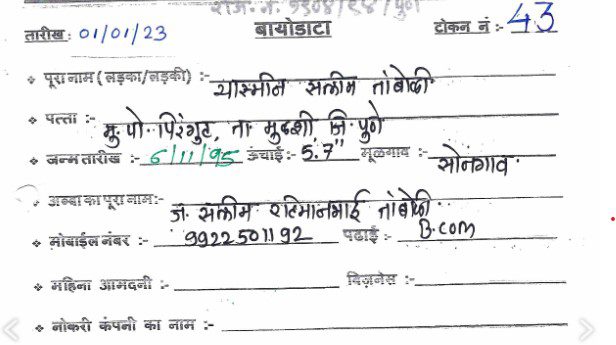 तारीख: 01/01/23 बायोडाटा टोकन नं:- 43
❖ पूरा नाम (लड़का/लड़की) :- यास्मीन सलीम तांबोळी.
❖ पत्ता :- मु. पो. पिरंगुट, ता. मुळशी, जि. पुणे
❖ जन्म तारीख :- 6/11/95 ऊंचाई:- 5.7" मूळगाव:- सोनगाव.
❖ अब्बा का पूरा नाम:- ज. सलीम रहिमानभाई तांबोळी.
❖ मोबाईल नंबर :- 9922501192 पढाई:- B.com
❖ महिना आमदनी :- बिज़नेस :-
❖ नोकरी कंपनी का नाम :-